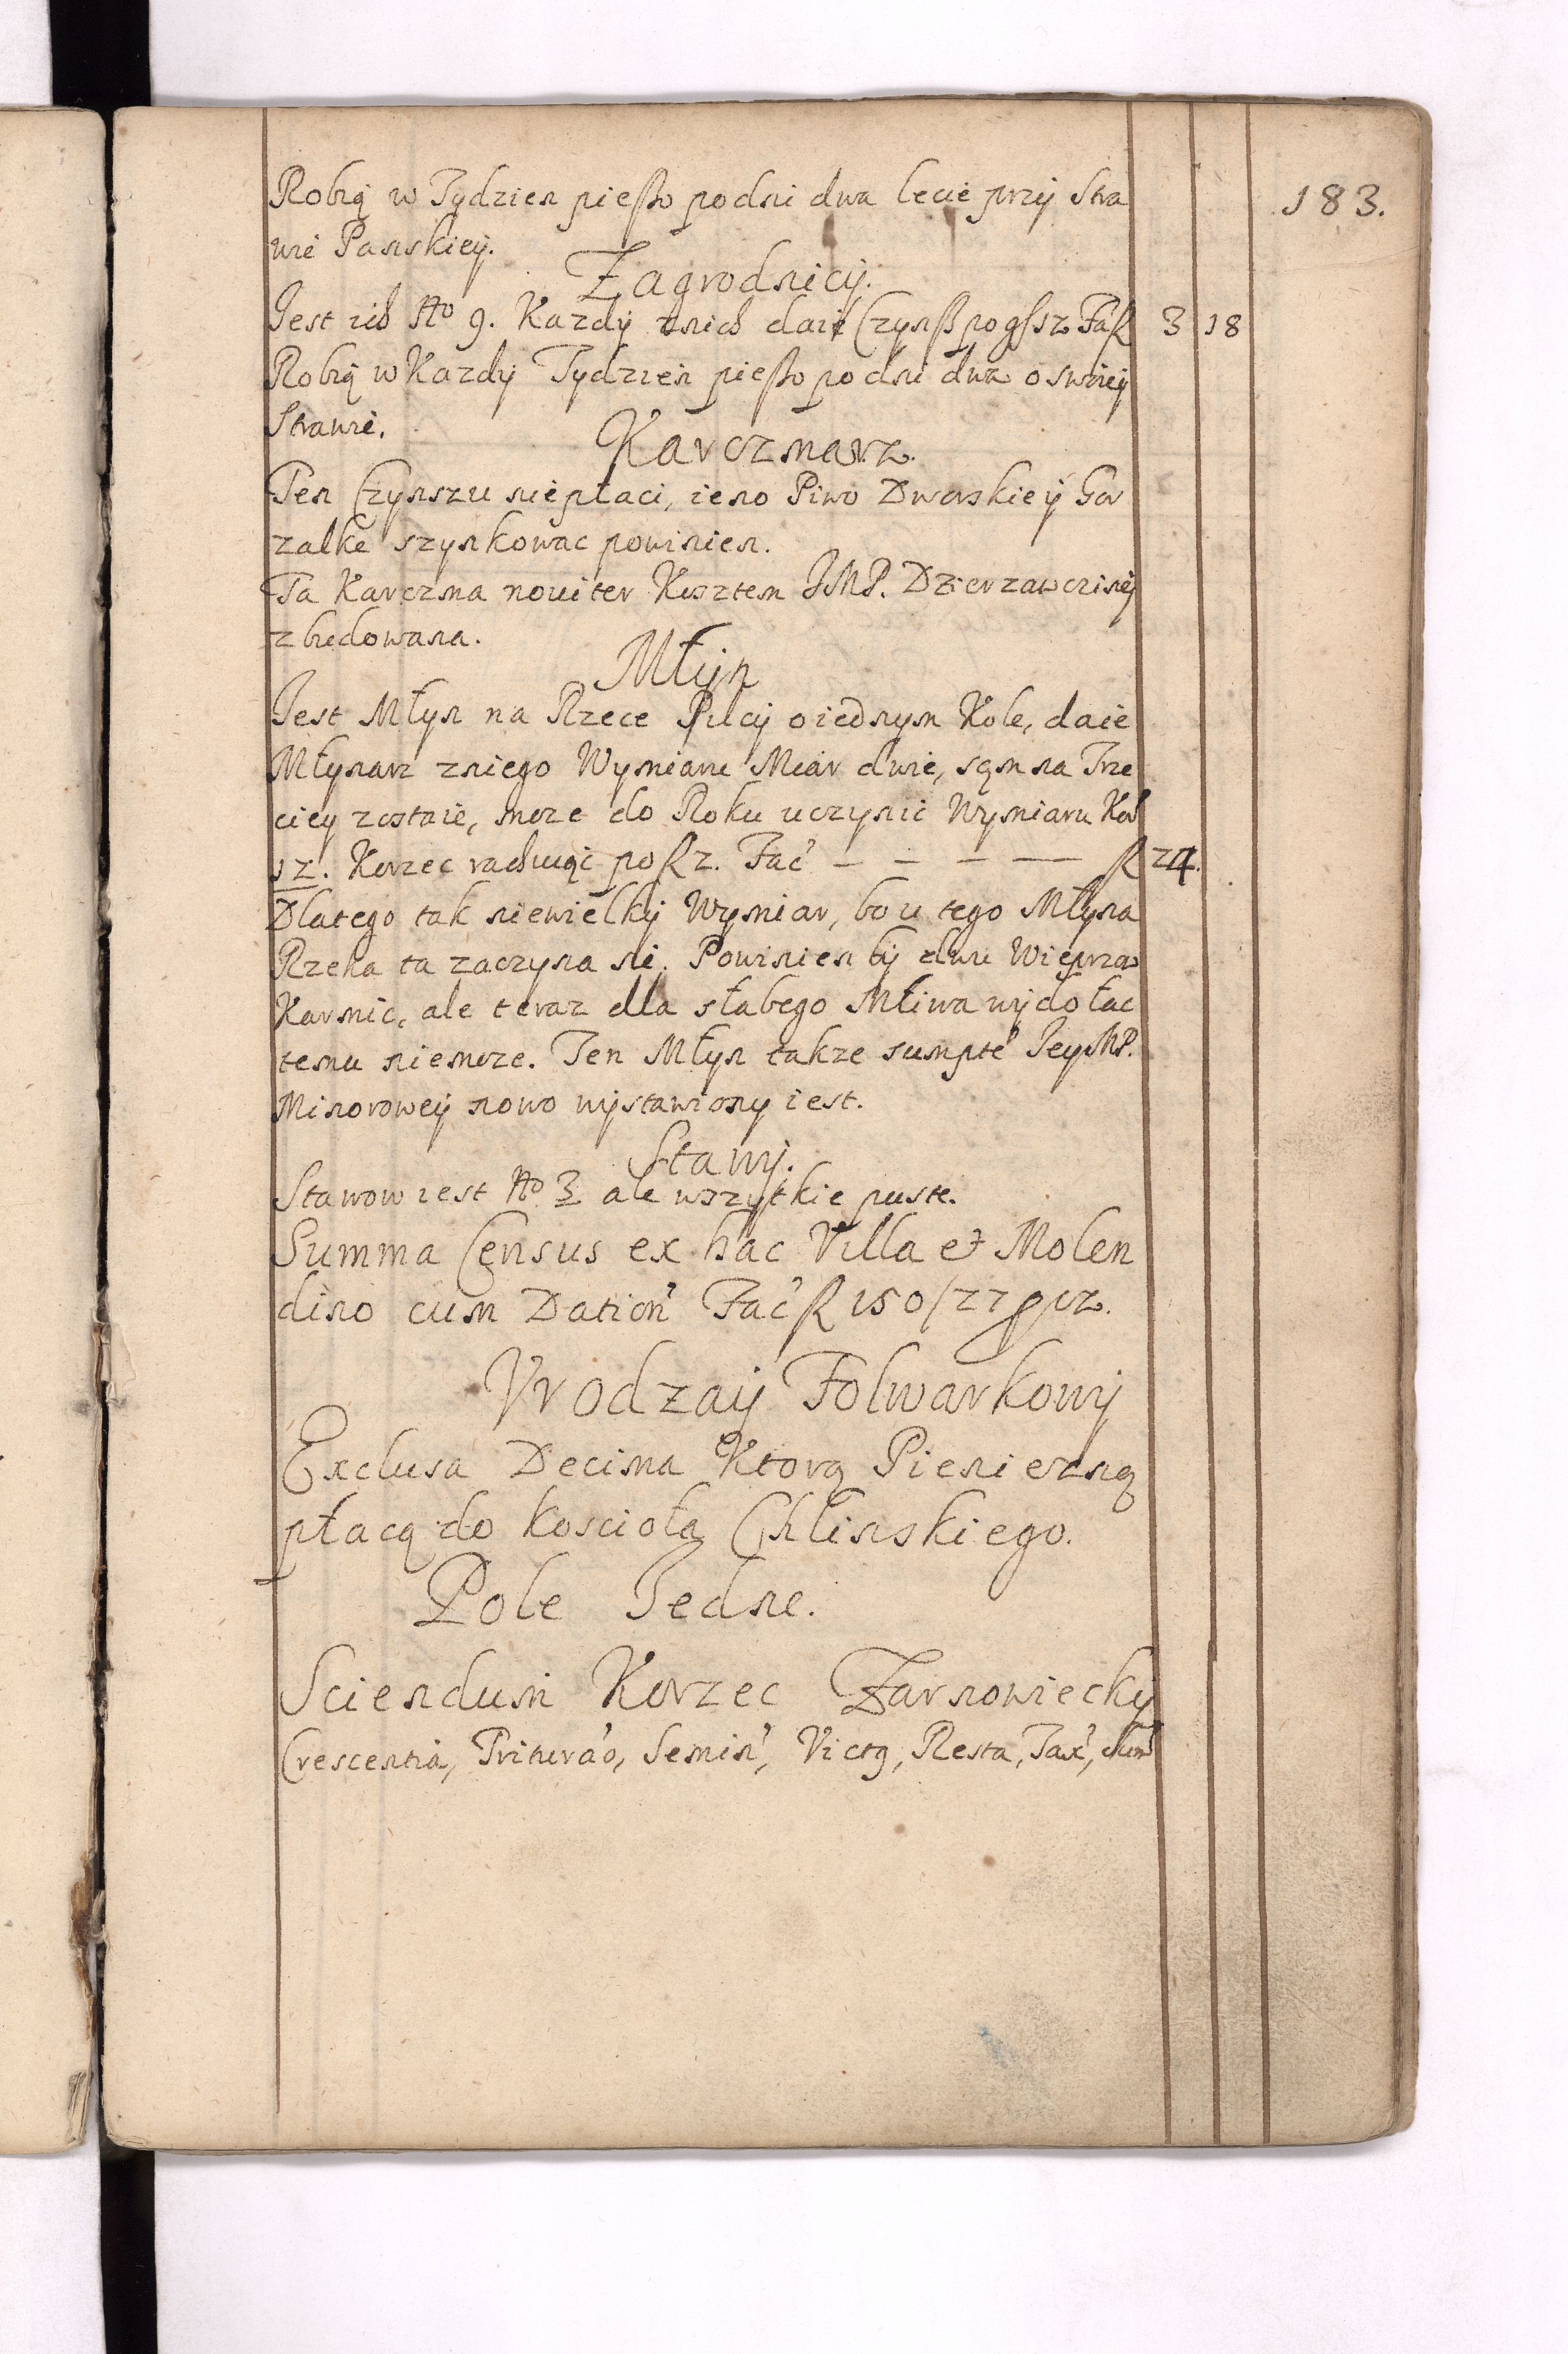 183.
Robią w Tydzien pieszo po dni dwa lecie przy Stra
wie Panskiey.
Zagrodnicy.
Jest ich No 9. Kazdy znich daie Czynszu po g/ 12. Fac fl 3 18
Robią w Kazdy Tydzien pieszo po dni dwa o swoiey
Strawie.
Karczmarz.
Ten Czynszu niepłaci, ieno Piwo Dworskie y Gor
zalke szynkowac powinien.
Ta Karczma noviter Kosztem JMP. Dzierzawczyney
zbudowana.
Młyn
Jest Młyn na Rzece Pilcy o iednym Kole, daie
Młynarz zniego Wymiaru Miar dwie, sam na Trze
ciey zostaie, moze do Roku uczynic Wymiaru Kor
12. Korzec rachuiąc po fl 2. Fac – – – — fl 24.
Dlatego tak niewielky Wymiar, bo u tego Młyna
Rzeka ta zaczyna sie. Powinien by dwu Wieprzow
Karmic, ale teraz dla słabego Mliwa wydołac
temu niemoze. Ten Młyn takze sumpte JeyMP.
Minorowey nowo wystawiony iest.
Stawy.
Stawow iest No 3 ale wszytkie puste.
Summa Census ex hac Villa et Molen
dino cum Dation Fac fl 150/27
Vrodzay Folwarkowy
Exclusa Decima Ktorą Pieniezną
płacą do Koscioła Chlinskiego.
Pole Jedne.
Sciendum Korzec Zarnowiecky
Crescentia, Triturao, Semin, Victg, Resta, Tax,